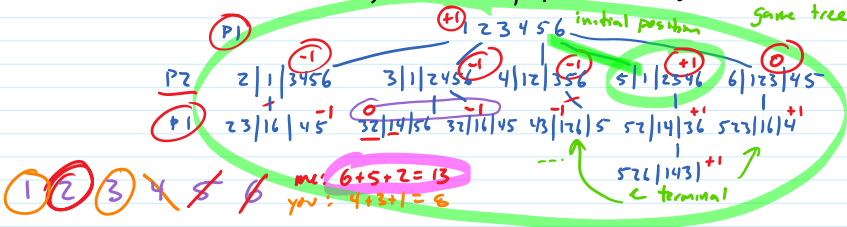 +1 1 2 3 4 5 6 initial position game tree
P1
-1 -1 -1 +1 0
P2 2|1|3456 3|1|2456 4|12|356 5|1|2346 6|123|45
P1 23|16|45 -1 0 32|14|56 32|16|45 -1 43|126|5 -1 52|14|36 +1 523|16|4 +1
526|143| +1
← terminal
1 2 3 4 5 6 me: 6+5+2=13
you: 4+3+1=8